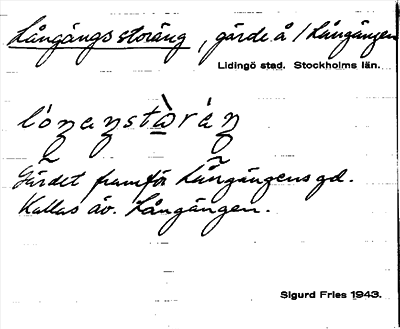 Långängsstoräng, gärde å / Långängen
Lidingö stad. Stockholms län.
Gärdet framför Långängens gd.
Kallas äv. Långängen.
Sigurd Fries 1943.